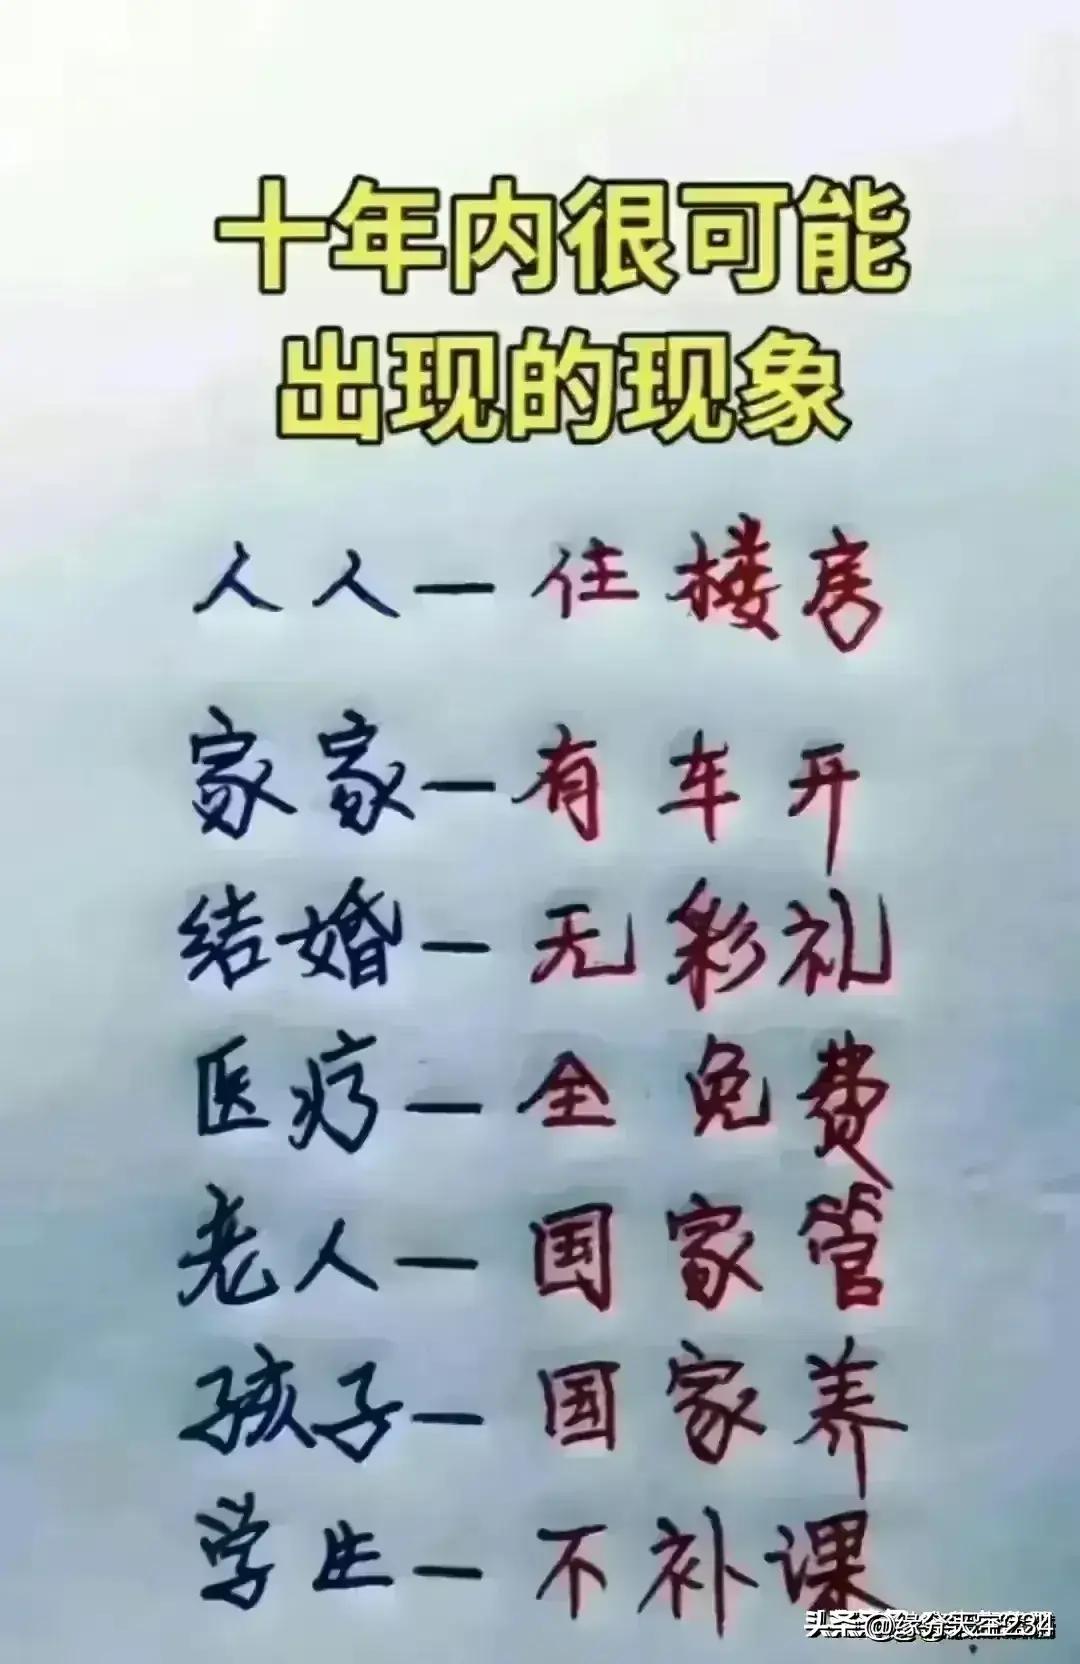 十年内很可能
出现的现象
人人一住楼房
家家一有车开
结婚一无彩礼
医疗一全免费
老人一国家管
孩子一国家养
学生一不补课
头条 @缘分天